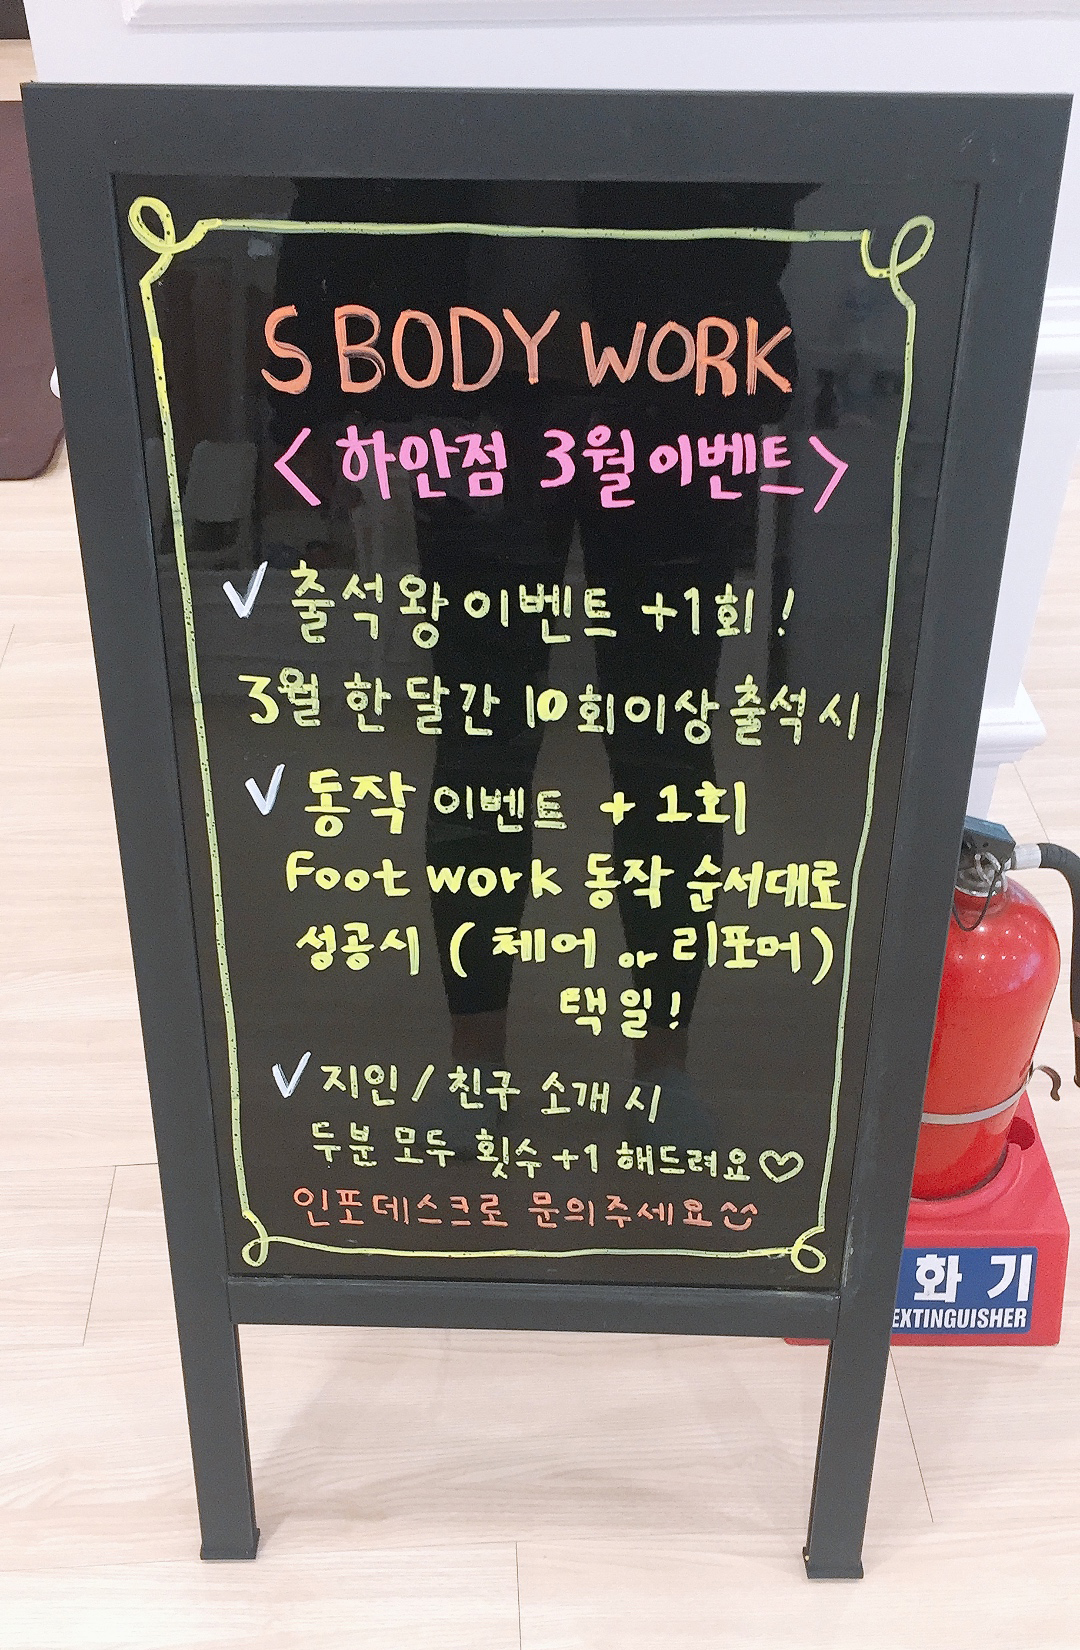 S BODY WORK
< 하안점 3월 이벤트 >
✓ 출석왕 이벤트 +1회!
3월 한달간 10회이상 출석 시
✓ 동작 이벤트 + 1회
Foot work 동작 순서대로
성공시 ( 체어 or 리포머 )
택일!
✓ 지인 / 친구 소개 시
두분 모두 횟수 +1 해드려요♡
인포데스크로 문의주세요^^
화기
EXTINGUISHER